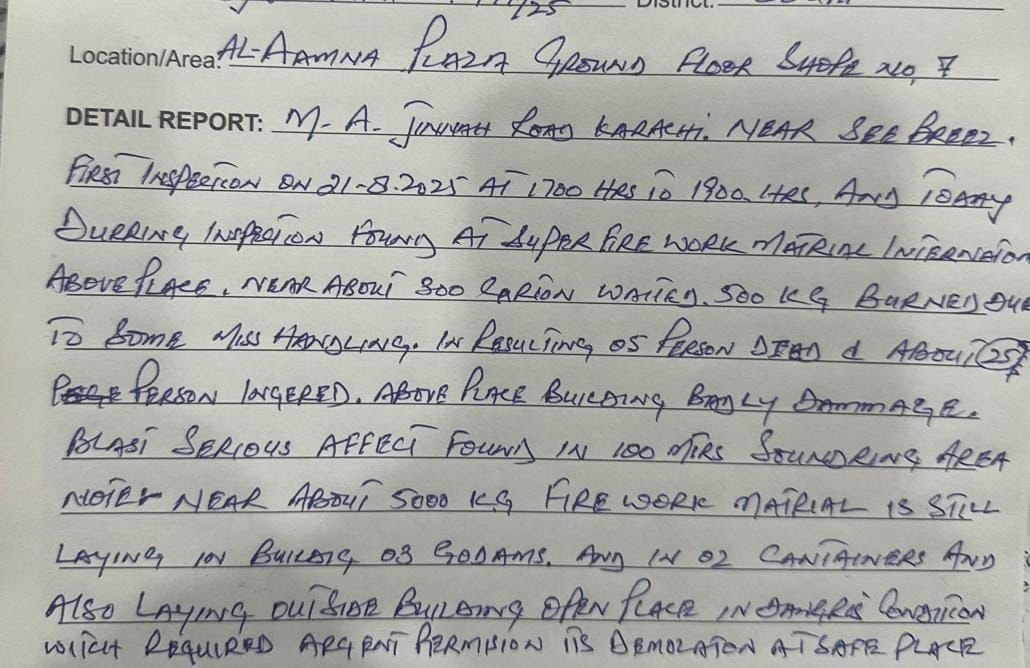 /25 District:
Location/Area: AL-AAMNA PLAZA GROUND FLOOR SHOPE NO, 7
DETAIL REPORT: M-A- JINNAH ROAD KARACHI. NEAR SEE BREEZ.
FIRST INSPECTION ON 21-8-2025 AT 1700 HRS TO 1900. HRS, AND TODAY
DURRING INSPECTION FOUND AT SUPER FIRE WORK MATRIAL INTERNATION
ABOVE PLACE. NEAR ABOUT 300 CARTON WAITED. 500 KG BURNED DUE
TO SOME MISS HANDLING. IN RESULTING 05 PERSON DEAD & ABOUT 25
PERSON INGERED. ABOVE PLACE BUILDING BADLY DAMMAGE.
BLAST SERIOUS AFFECT FOUND IN 100 MTRS SOUNDRING AREA
NOTE NEAR ABOUT 5000 KG FIRE WORK MATRIAL IS STILL
LAYING IN BUILDIG 03 GODAMS. AND IN 02 CANTAINERS AND
ALSO LAYING OUTSIDE BUILDING OPEN PLACE IN DANGRIS CONDITION
WITCH REQUIRED ARGENT PERMISION ITS DEMOLATON AT SAFE PLACE